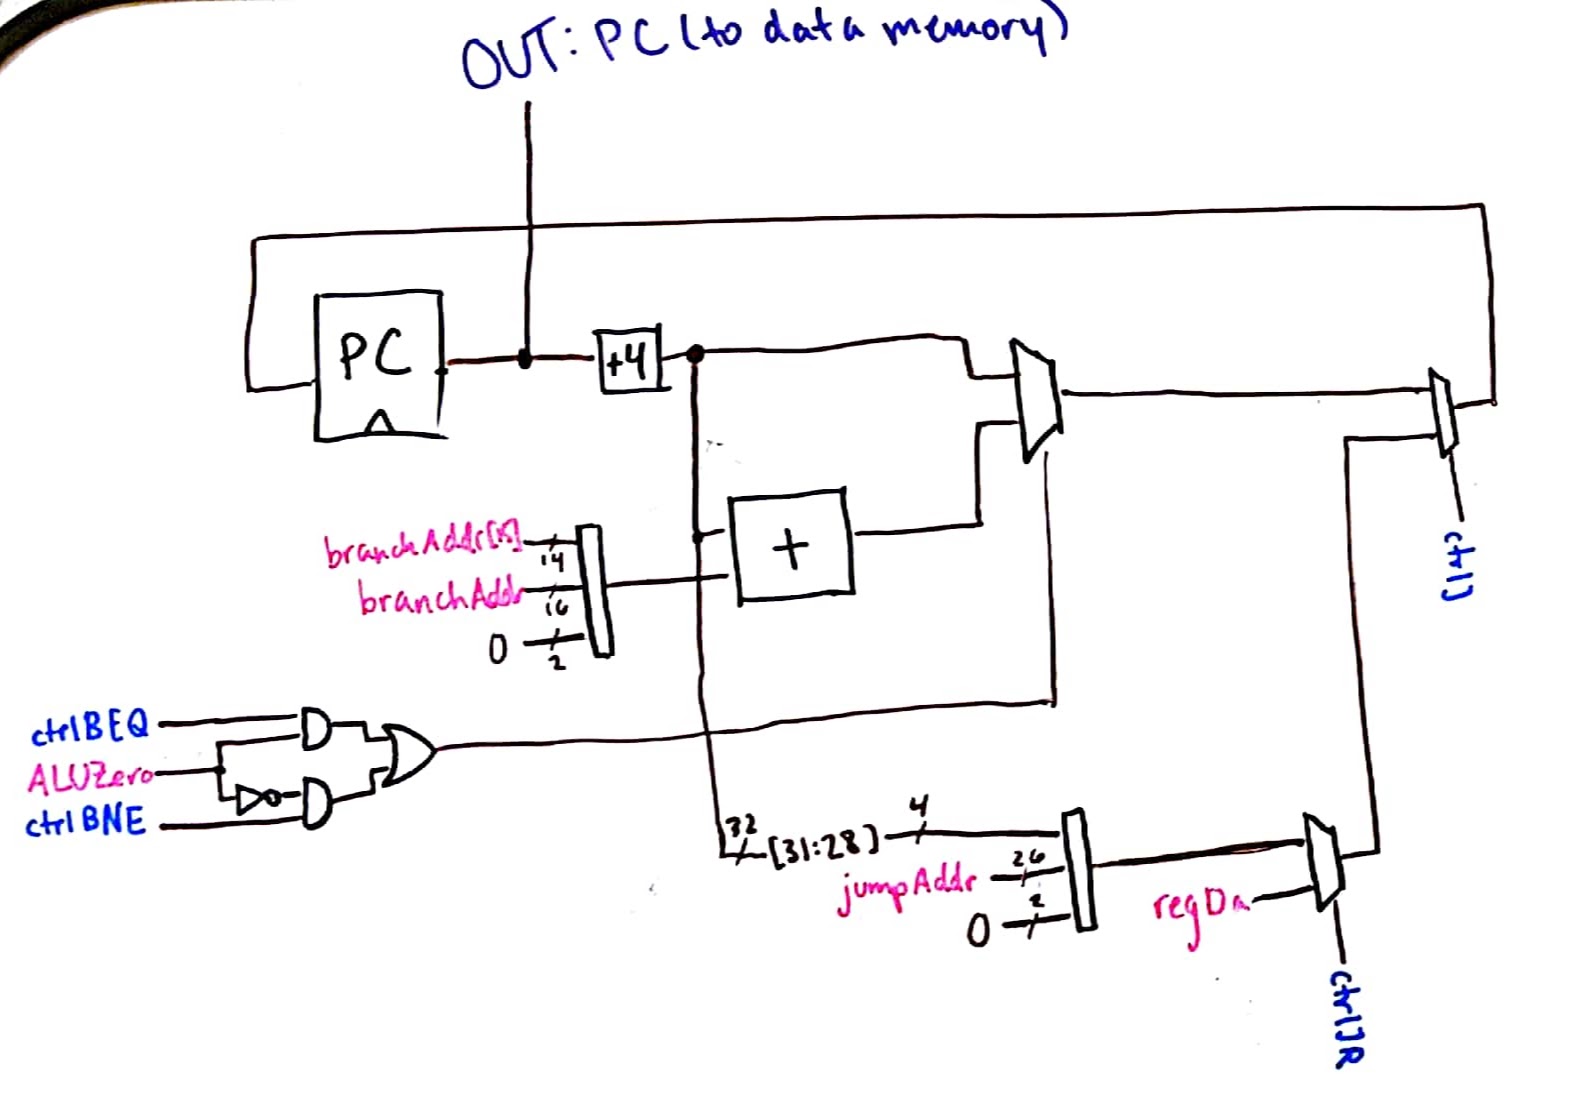 OUT: PC (to data memory)
PC
+4
branchAddr[15]
14
branchAddr
16
0
2
+
ctrlJ
ctrlBEQ
ALUZero
ctrlBNE
32
[31:28]
4
jumpAddr
26
0
2
regDa
ctrlJR